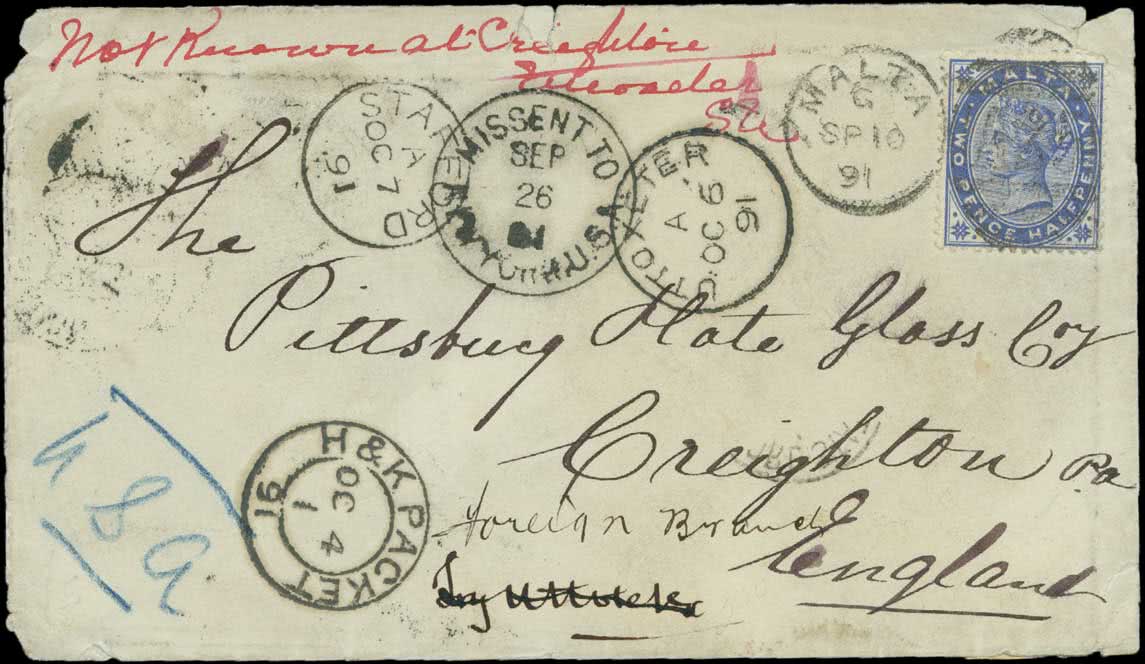 Not Known at Creighton
Uttoxeter
STAFFORD
A
OC 7
91
MISSENT TO
SEP
26
91
NEW YORK U.S.A.
UTTOXETER
A
OC 6
91
MALTA
SP 10
91
MALTA
TWO PENCE HALFPENNY
The
Pittsburg Plate Glass Coy
Creighton Pa
Foreign Branch
England
Try
H & K PACKET
OC 4
91